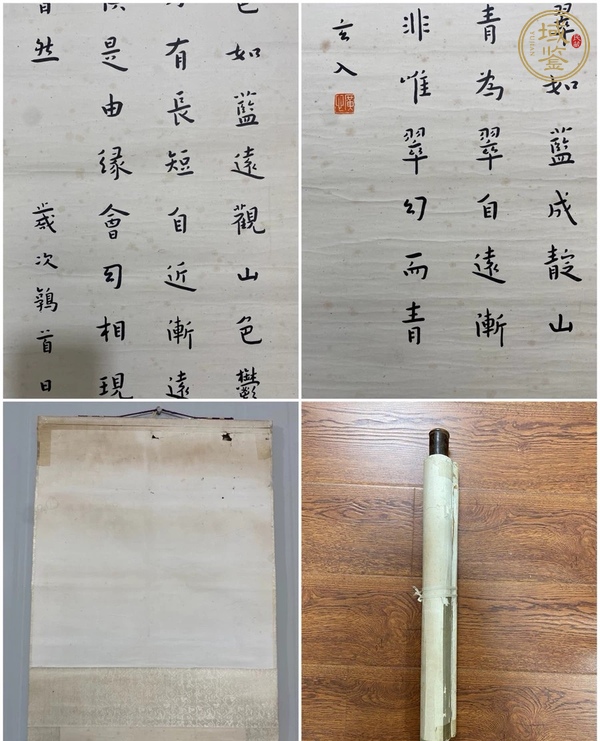 色如藍遠觀山色鬱
有長短自近漸遠
是由緣會幻相現
然 歲次鶉首日
翠如藍成靛山
青為翠自遠漸
非唯翠幻而青
玄入
域鑒
YUJIAN